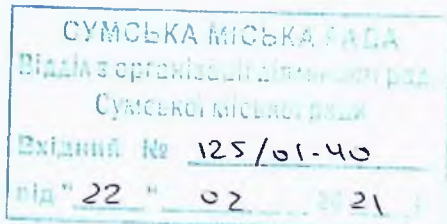 СУМСЬКА МІСЬКА РАДА
Відділ з організації діяльності ради
Сумської міської ради
Вхідний № 125/01-40
від "22" 02 2021